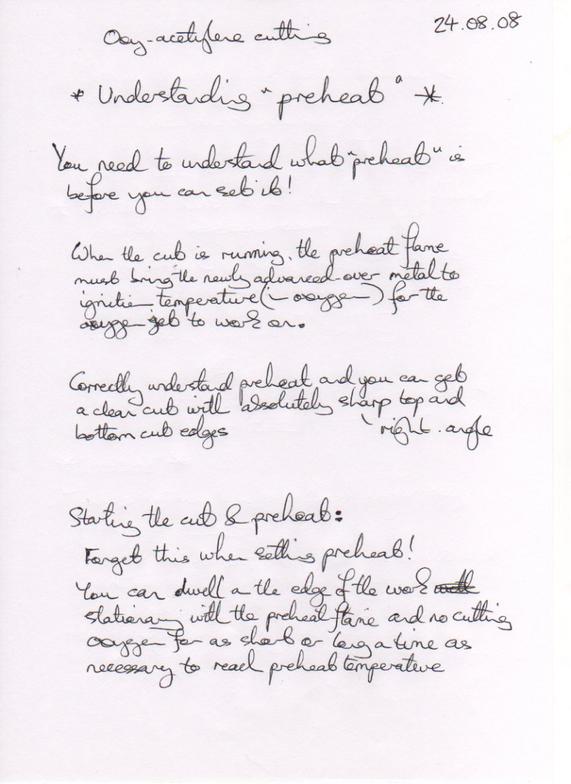 Oxy-acetylene cutting
24.08.08
* Understanding "preheat" *
You need to understand what "preheat" is
before you can set it!
When the cut is running, the preheat flame
must bring the newly advanced-over metal to
ignition temperature (in oxygen) for the
oxygen jet to work on.
Correctly understand preheat and you can get
a clean cut with absolutely sharp top and
bottom cut edges
right-angle
Starting the cut & preheat:
Forget this when setting preheat!
You can dwell on the edge of the work
stationary with the preheat flame and no cutting
oxygen for as short or long a time as
necessary to reach preheat temperature